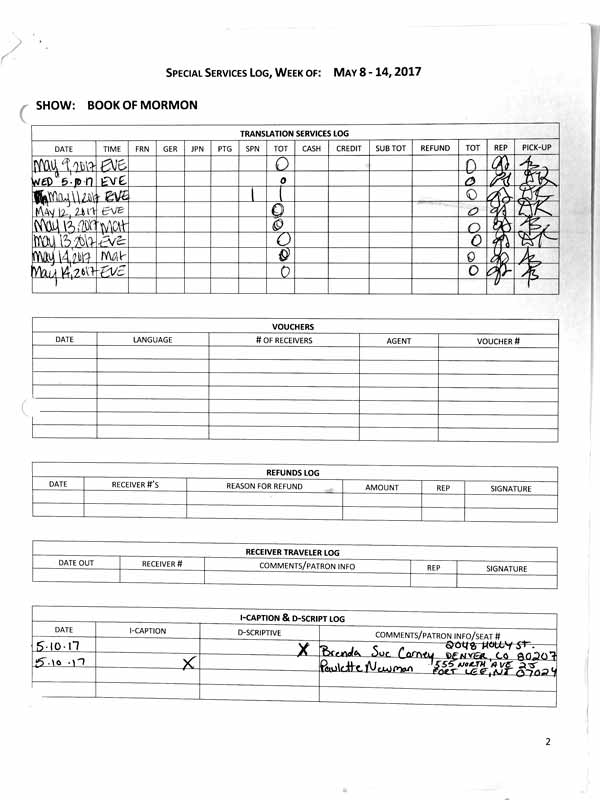 SPECIAL SERVICES LOG, WEEK OF: MAY 8 - 14, 2017
SHOW: BOOK OF MORMON
TRANSLATION SERVICES LOG
DATE TIME FRN GER JPN PTG SPN TOT CASH CREDIT SUB TOT REFUND TOT REP PICK-UP
May 9, 2017 EVE 0 0
WED 5.10.17 EVE 0 0
May 11 2017 EVE 1 1 0
MAY 12, 2017 EVE 0 0
May 13, 2017 Mat 0 0
May 13, 2017 EVE 0 0
May 14, 2017 Mat 0 0
May 14, 2017 EVE 0 0
VOUCHERS
DATE LANGUAGE # OF RECEIVERS AGENT VOUCHER #
REFUNDS LOG
DATE RECEIVER #'S REASON FOR REFUND AMOUNT REP SIGNATURE
RECEIVER TRAVELER LOG
DATE OUT RECEIVER # COMMENTS/PATRON INFO REP SIGNATURE
I-CAPTION & D-SCRIPT LOG
DATE I-CAPTION D-SCRIPTIVE COMMENTS/PATRON INFO/SEAT #
2048 HOLLY ST.
5.10.17 X Brenda Sue Carney DENVER, CO 80207
5.10.17 X Paulette Newman 555 NORTH AVE 25
FORT LEE, NJ 07024
2